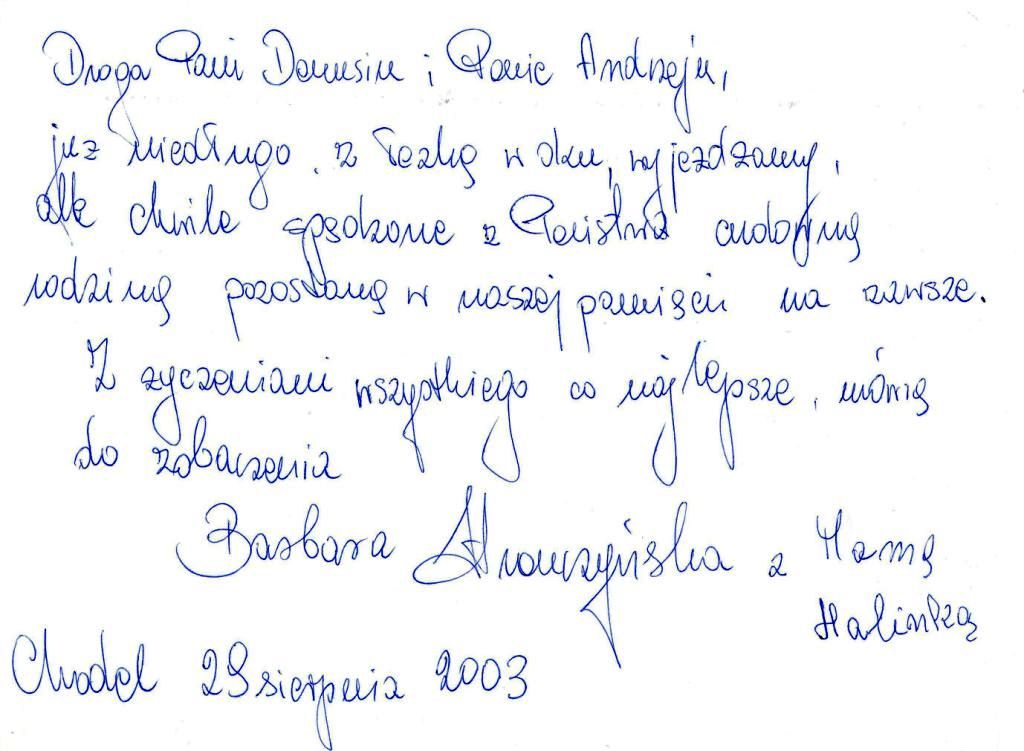 Droga Pani Danusiu i Panie Andrzeju,
już niedługo, z łezką w oku, wyjeżdżamy,
ale chwile spędzone z Państwa cudowną
rodziną pozostaną w naszej pamięci na zawsze.
Z życzeniami wszystkiego co najlepsze, mówię
do zobaczenia
Barbara z Mamą
Halinką
Chodel 29 sierpnia 2003